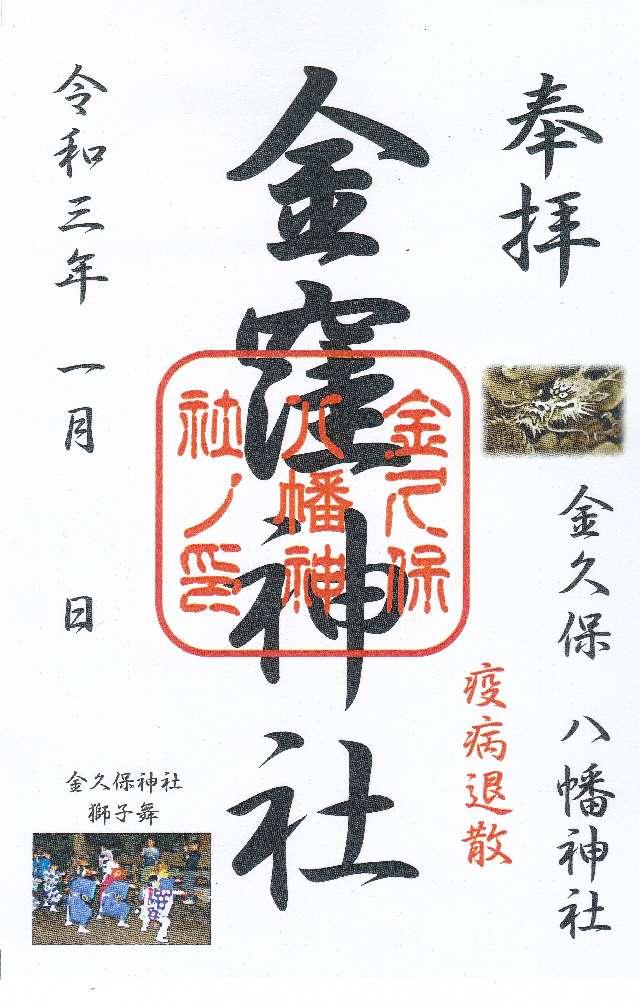 奉拝
金久保 八幡神社
疫病退散
金窪神社
金久保
八幡神
社ノ印
令和三年 一月 日
金久保神社
獅子舞